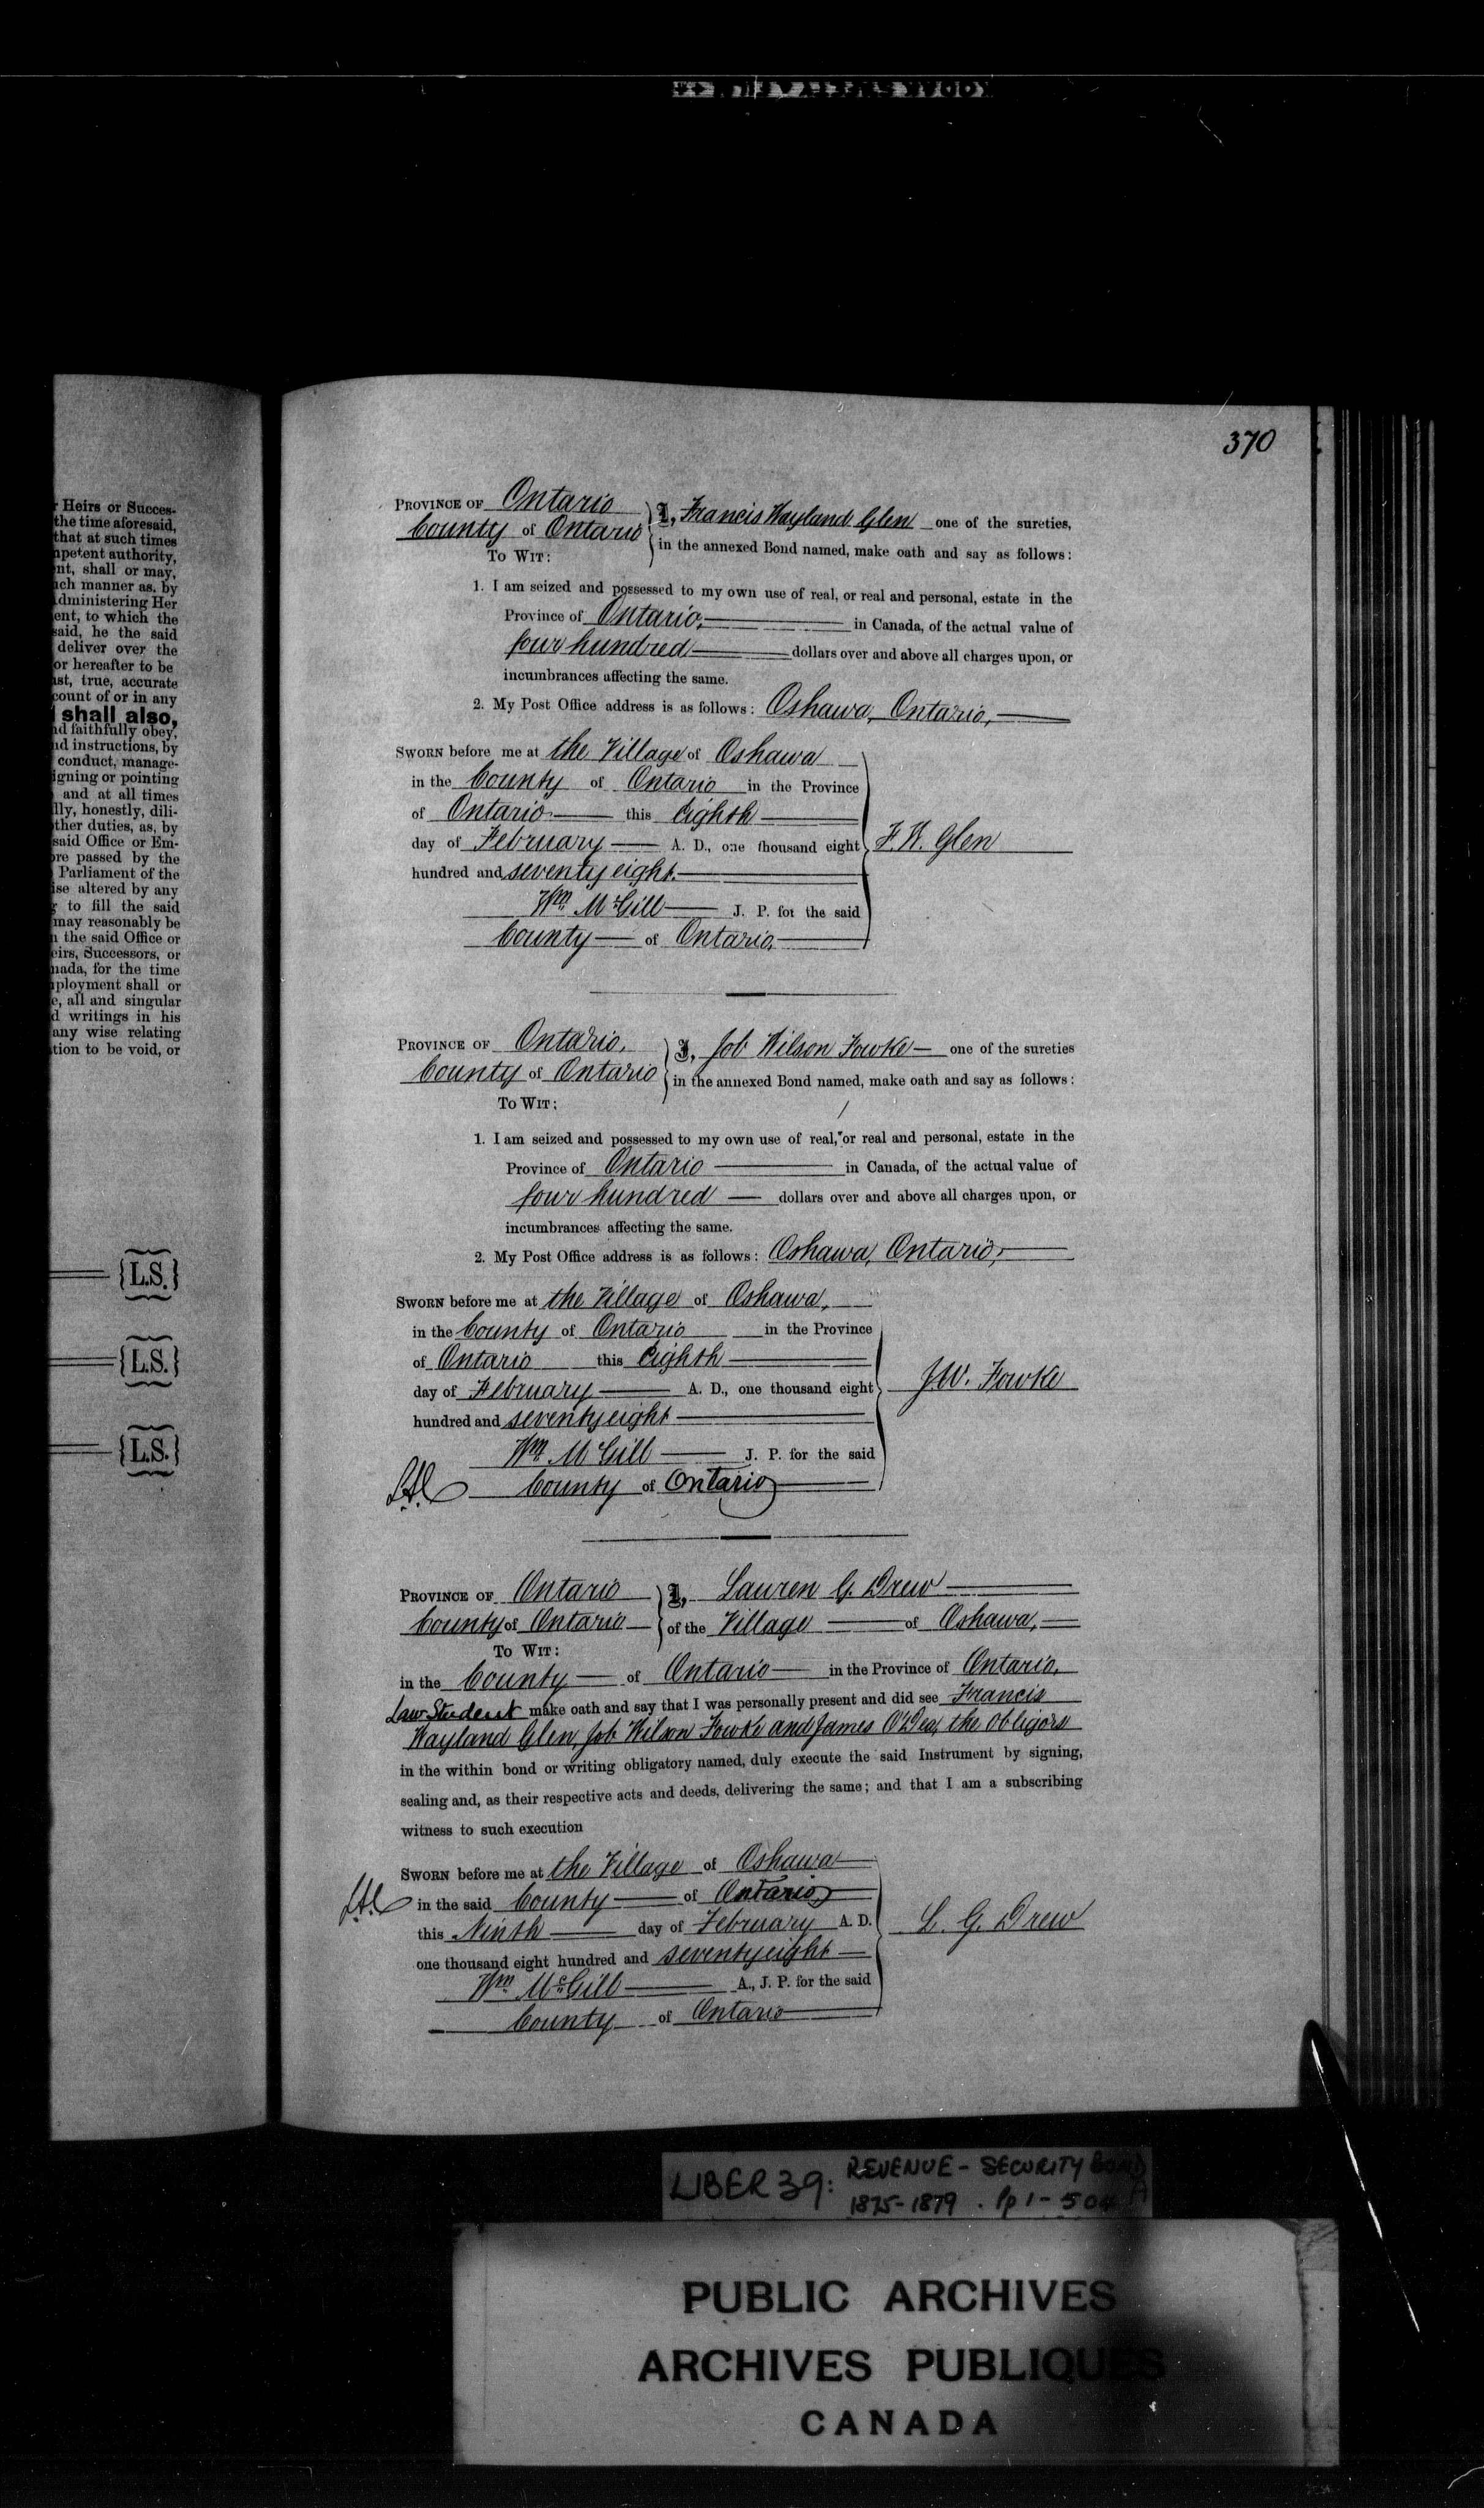 370
r Heirs or Succes-
the time aforesaid,
that at such times
npetent authority,
ent, shall or may,
ach manner as, by
administering Her
ent, to which the
said, he the said
deliver over the
or hereafter to be
ust, true, accurate
count of or in any
shall also,
nd faithfully obey,
nd instructions, by
conduct, manage-
igning or pointing
and at all times
lly, honestly, dili-
ther duties, as, by
said Office or Em-
ore passed by the
Parliament of the
ise altered by any
g to fill the said
may reasonably be
n the said Office or
eirs, Successors, or
nada, for the time
ployment shall or
e, all and singular
d writings in his
any wise relating
tion to be void, or
{L.S.}
{L.S.}
{L.S.}
PROVINCE OF Ontario } I, Francis Wayland Glen one of the sureties,
County of Ontario { in the annexed Bond named, make oath and say as follows:
TO WIT:
1. I am seized and possessed to my own use of real, or real and personal, estate in the
Province of Ontario, in Canada, of the actual value of
four hundred dollars over and above all charges upon, or
incumbrances affecting the same.
2. My Post Office address is as follows: Oshawa, Ontario,
SWORN before me at the Village of Oshawa
in the County of Ontario in the Province
of Ontario this Eighth
day of February A. D., one thousand eight F. W. Glen
hundred and seventy eight.
Wm. McGill J. P. for the said
County of Ontario.
PROVINCE OF Ontario, } I, Job Wilson Fowke one of the sureties
County of Ontario { in the annexed Bond named, make oath and say as follows:
TO WIT:
1. I am seized and possessed to my own use of real, or real and personal, estate in the
Province of Ontario in Canada, of the actual value of
four hundred dollars over and above all charges upon, or
incumbrances affecting the same.
2. My Post Office address is as follows: Oshawa, Ontario,
SWORN before me at the Village of Oshawa,
in the County of Ontario in the Province
of Ontario this Eighth
day of February A. D., one thousand eight J.W. Fowke
hundred and seventy eight
Wm. McGill J. P. for the said
County of Ontario
PROVINCE OF Ontario } I, Lauren G. Drew
County of Ontario { of the Village of Oshawa,
TO WIT:
in the County of Ontario in the Province of Ontario,
Law Student make oath and say that I was personally present and did see Francis
Wayland Glen, Job Wilson Fowke and James O'Dea, the obligors
in the within bond or writing obligatory named, duly execute the said Instrument by signing,
sealing and, as their respective acts and deeds, delivering the same; and that I am a subscribing
witness to such execution
SWORN before me at the Village of Oshawa
in the said County of Ontario
this Ninth day of February A. D. L. G. Drew
one thousand eight hundred and seventy eight
Wm. McGill A., J. P. for the said
County of Ontario
LIBER 39: REVENUE - SECURITY BOND
1875-1879. Pp 1-504 A
PUBLIC ARCHIVES
ARCHIVES PUBLIQUES
CANADA